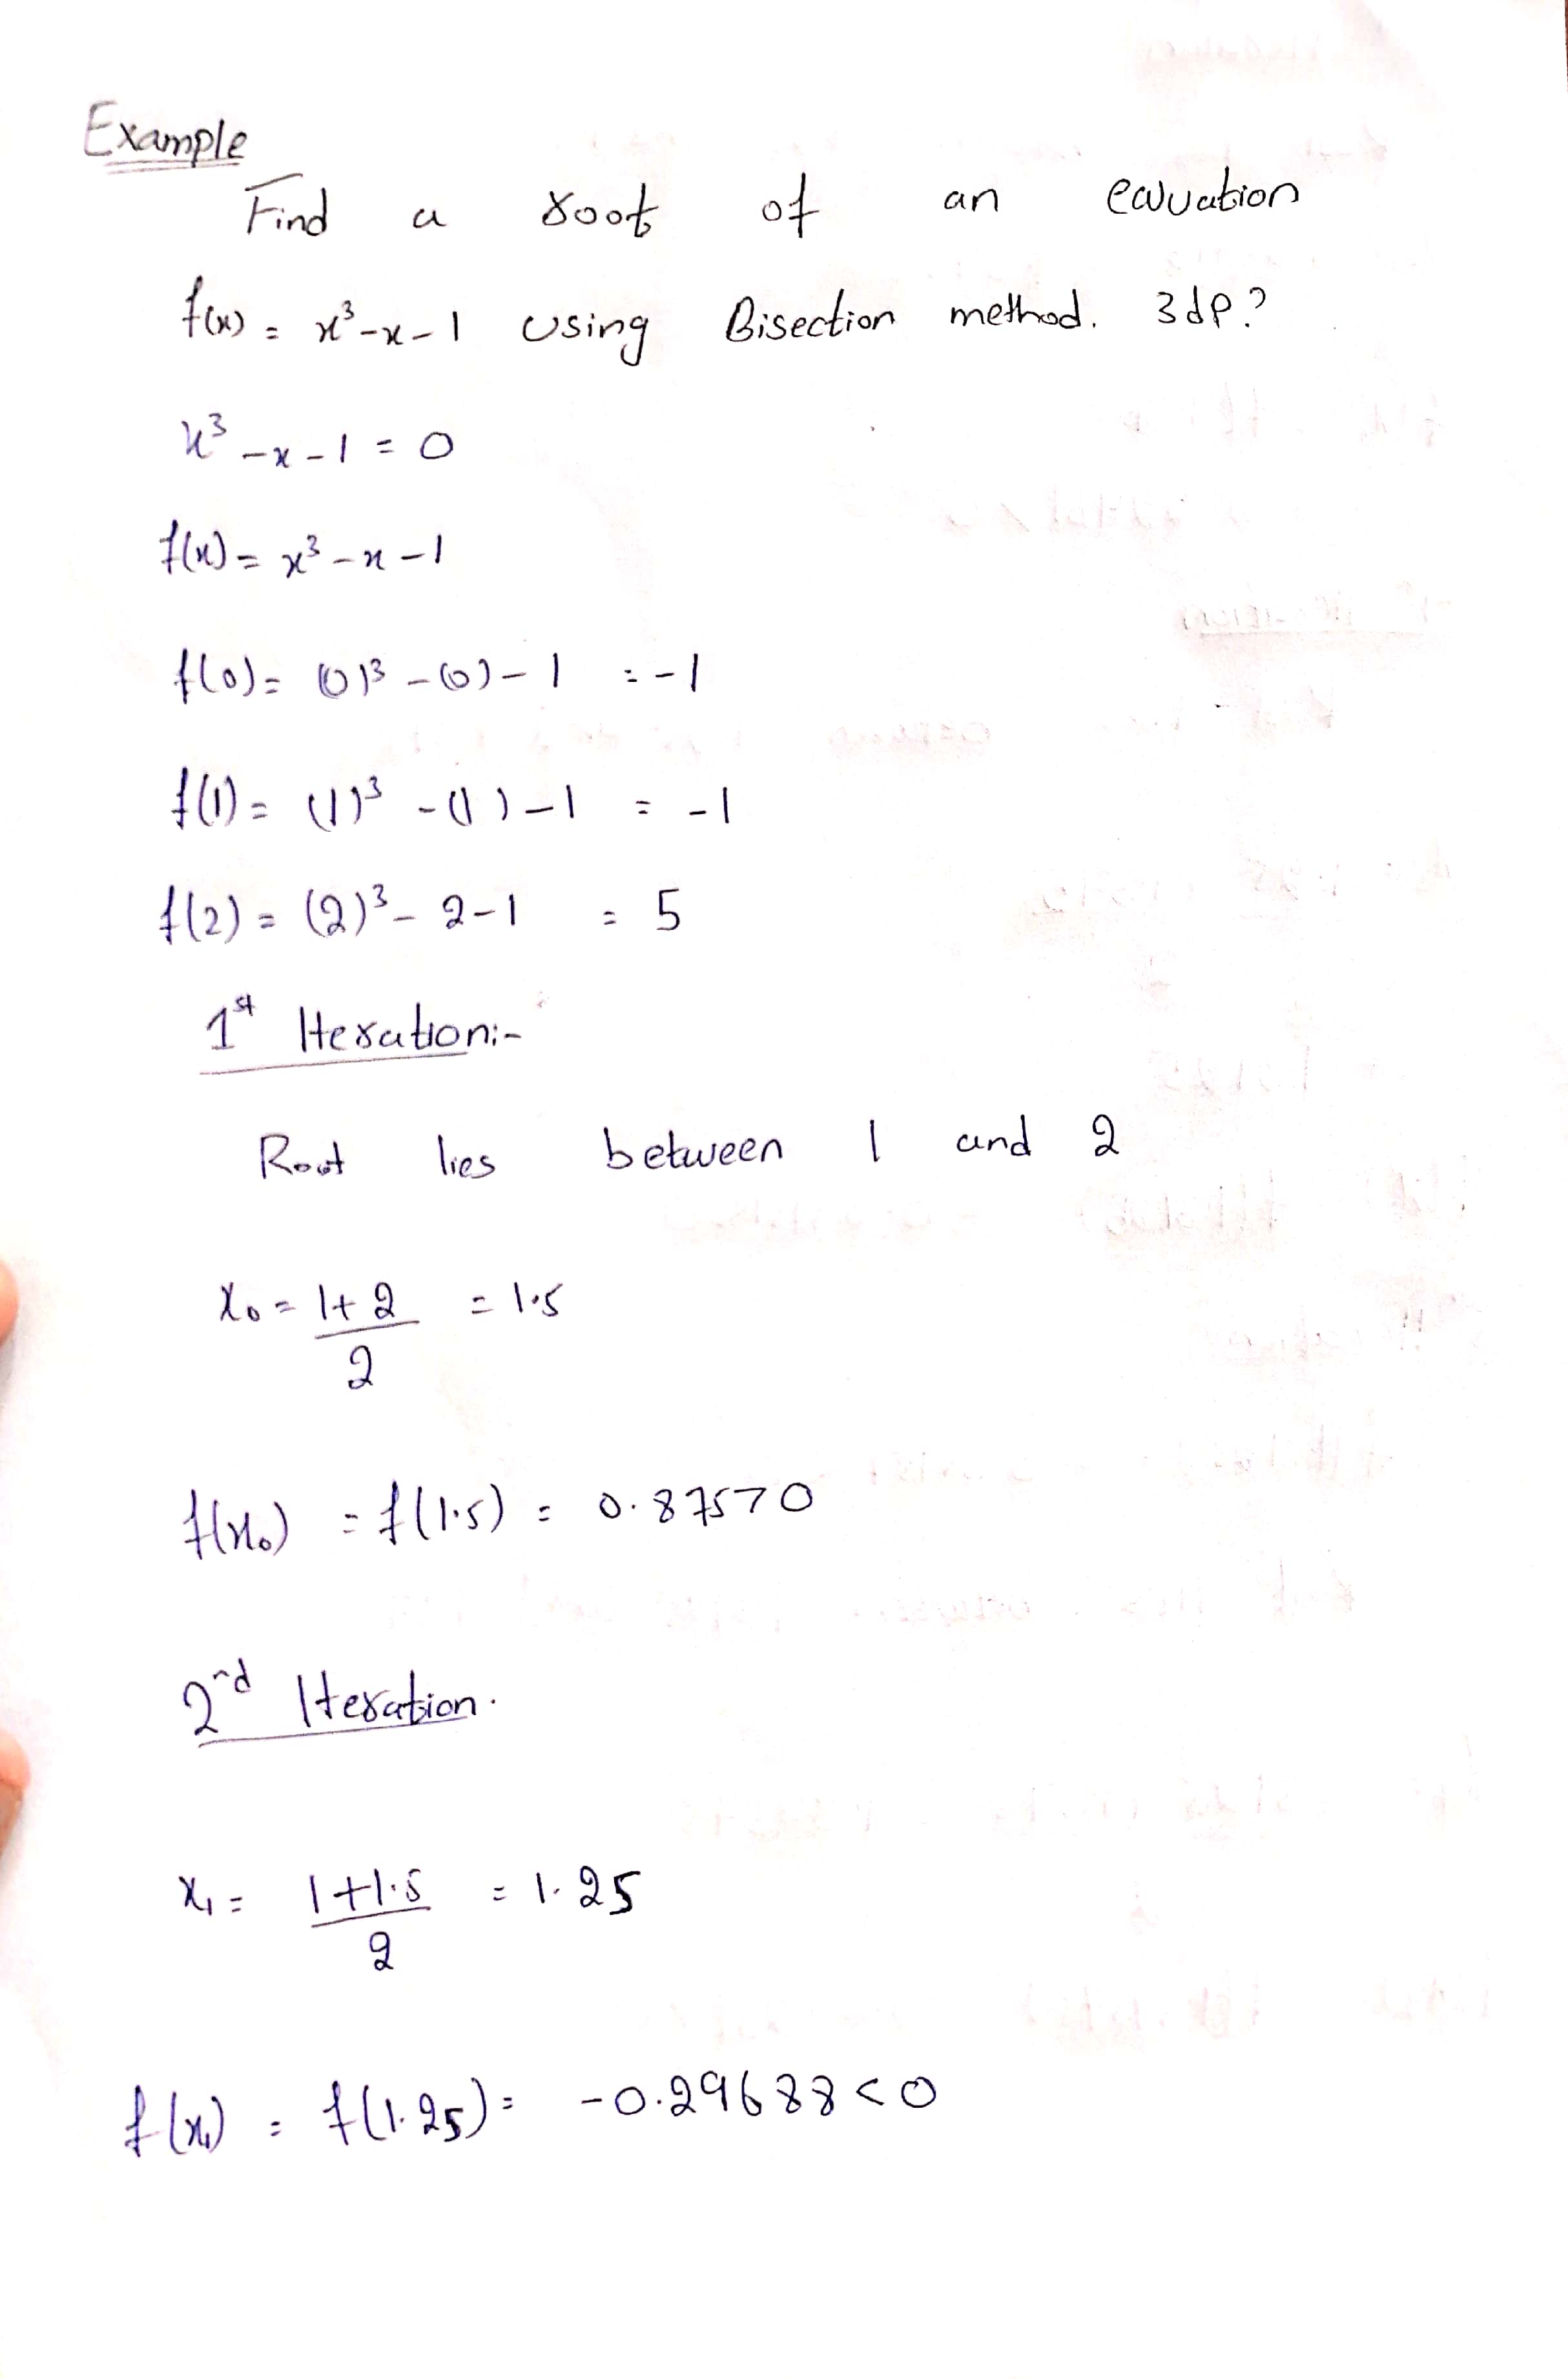 Example
Find a root of an equation
f(x) = x³-x-1 using Bisection method. 3dp?
x³-x-1 = 0
f(x) = x³-x-1
f(0) = (0)³-(0)-1 = -1
f(1) = (1)³-(1)-1 = -1
f(2) = (2)³-2-1 = 5
1st Iteration:-
Root lies between 1 and 2
x₀ = 1+2 = 1.5
2
f(x₀) = f(1.5) = 0.875>0
2nd Iteration.
x₁ = 1+1.5 = 1.25
2
f(x₁) = f(1.25) = -0.29688<0